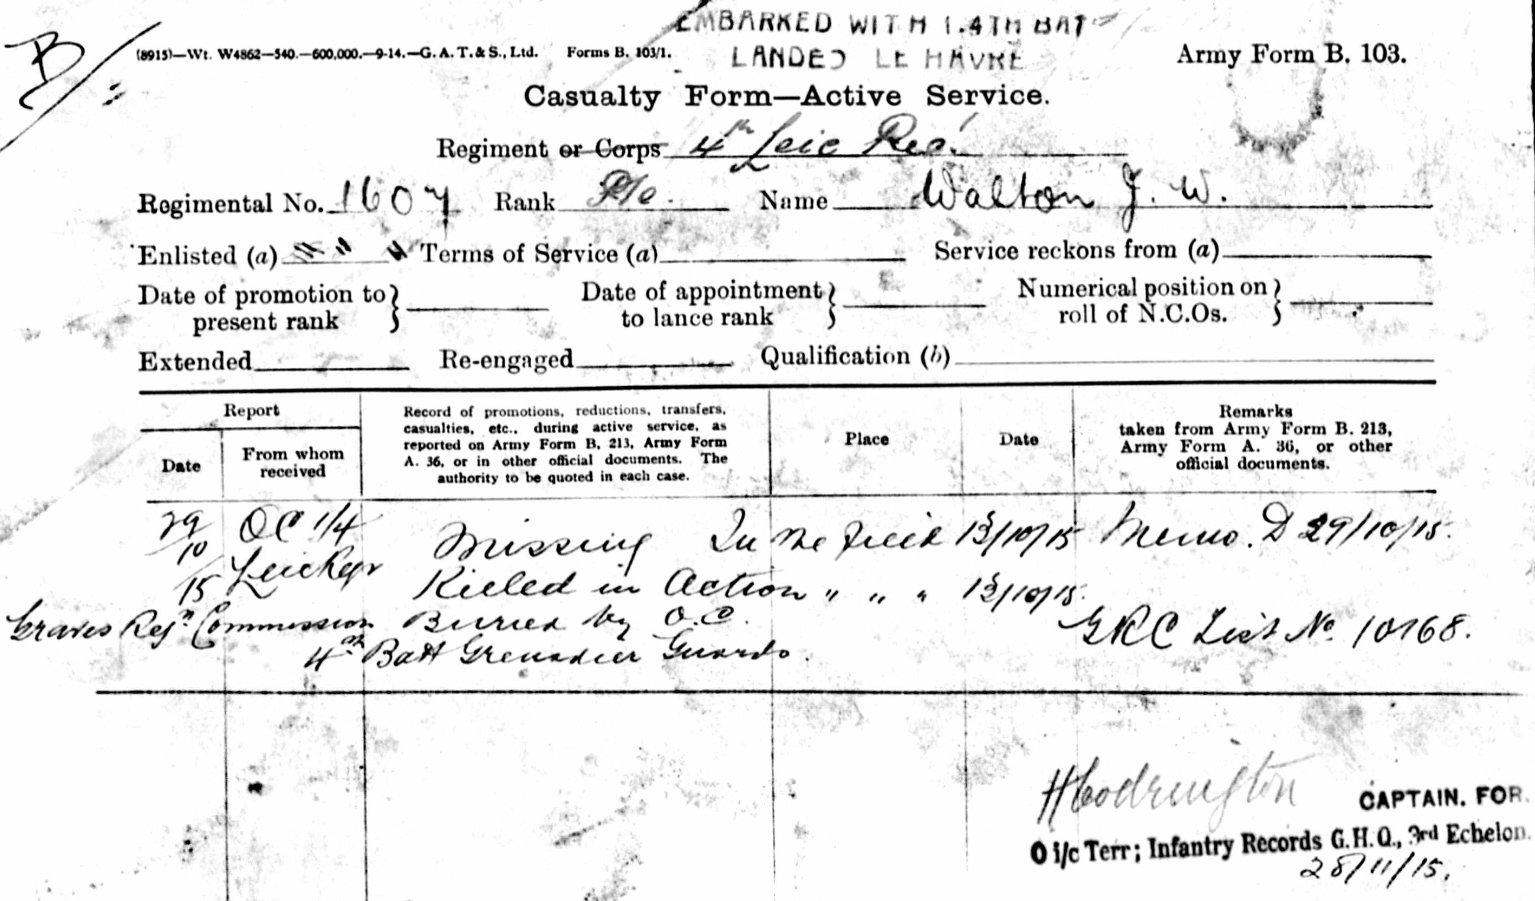 B/
EMBARKED WITH 1.4TH BAT
(8915)—Wt. W4862—540.—600,000.—9-14.—G. A. T. & S., Ltd. Forms B. 103/1. LANDED LE HAVRE Army Form B. 103.
Casualty Form—Active Service.
Regiment or Corps 4th Leic Reg!
Regimental No. 1607 Rank Pte. Name Walton J. W.
Enlisted (a) Terms of Service (a) Service reckons from (a)
Date of promotion to present rank } Date of appointment to lance rank } Numerical position on roll of N.C.Os. }
Extended Re-engaged Qualification (b)
Report
Date
From whom received
Record of promotions, reductions, transfers,
casualties, etc., during active service, as
reported on Army Form B. 213, Army Form
A. 36, or in other official documents. The
authority to be quoted in each case.
Place
Date
Remarks
taken from Army Form B. 213,
Army Form A. 36, or other
official documents.
29/10/15 OC 1/4 Leic Regt Missing In the Field 13/10/15 Memo. D 29/10/15.
Killed in Action " " " 13/10/15.
Graves Regn Commission Buried by O.C. GRC List No. 10768.
4th Batt Grenadier Guards.
H Codrington CAPTAIN. FOR.
O i/c Terr; Infantry Records G.H.Q., 3rd Echelon.
28/11/15.